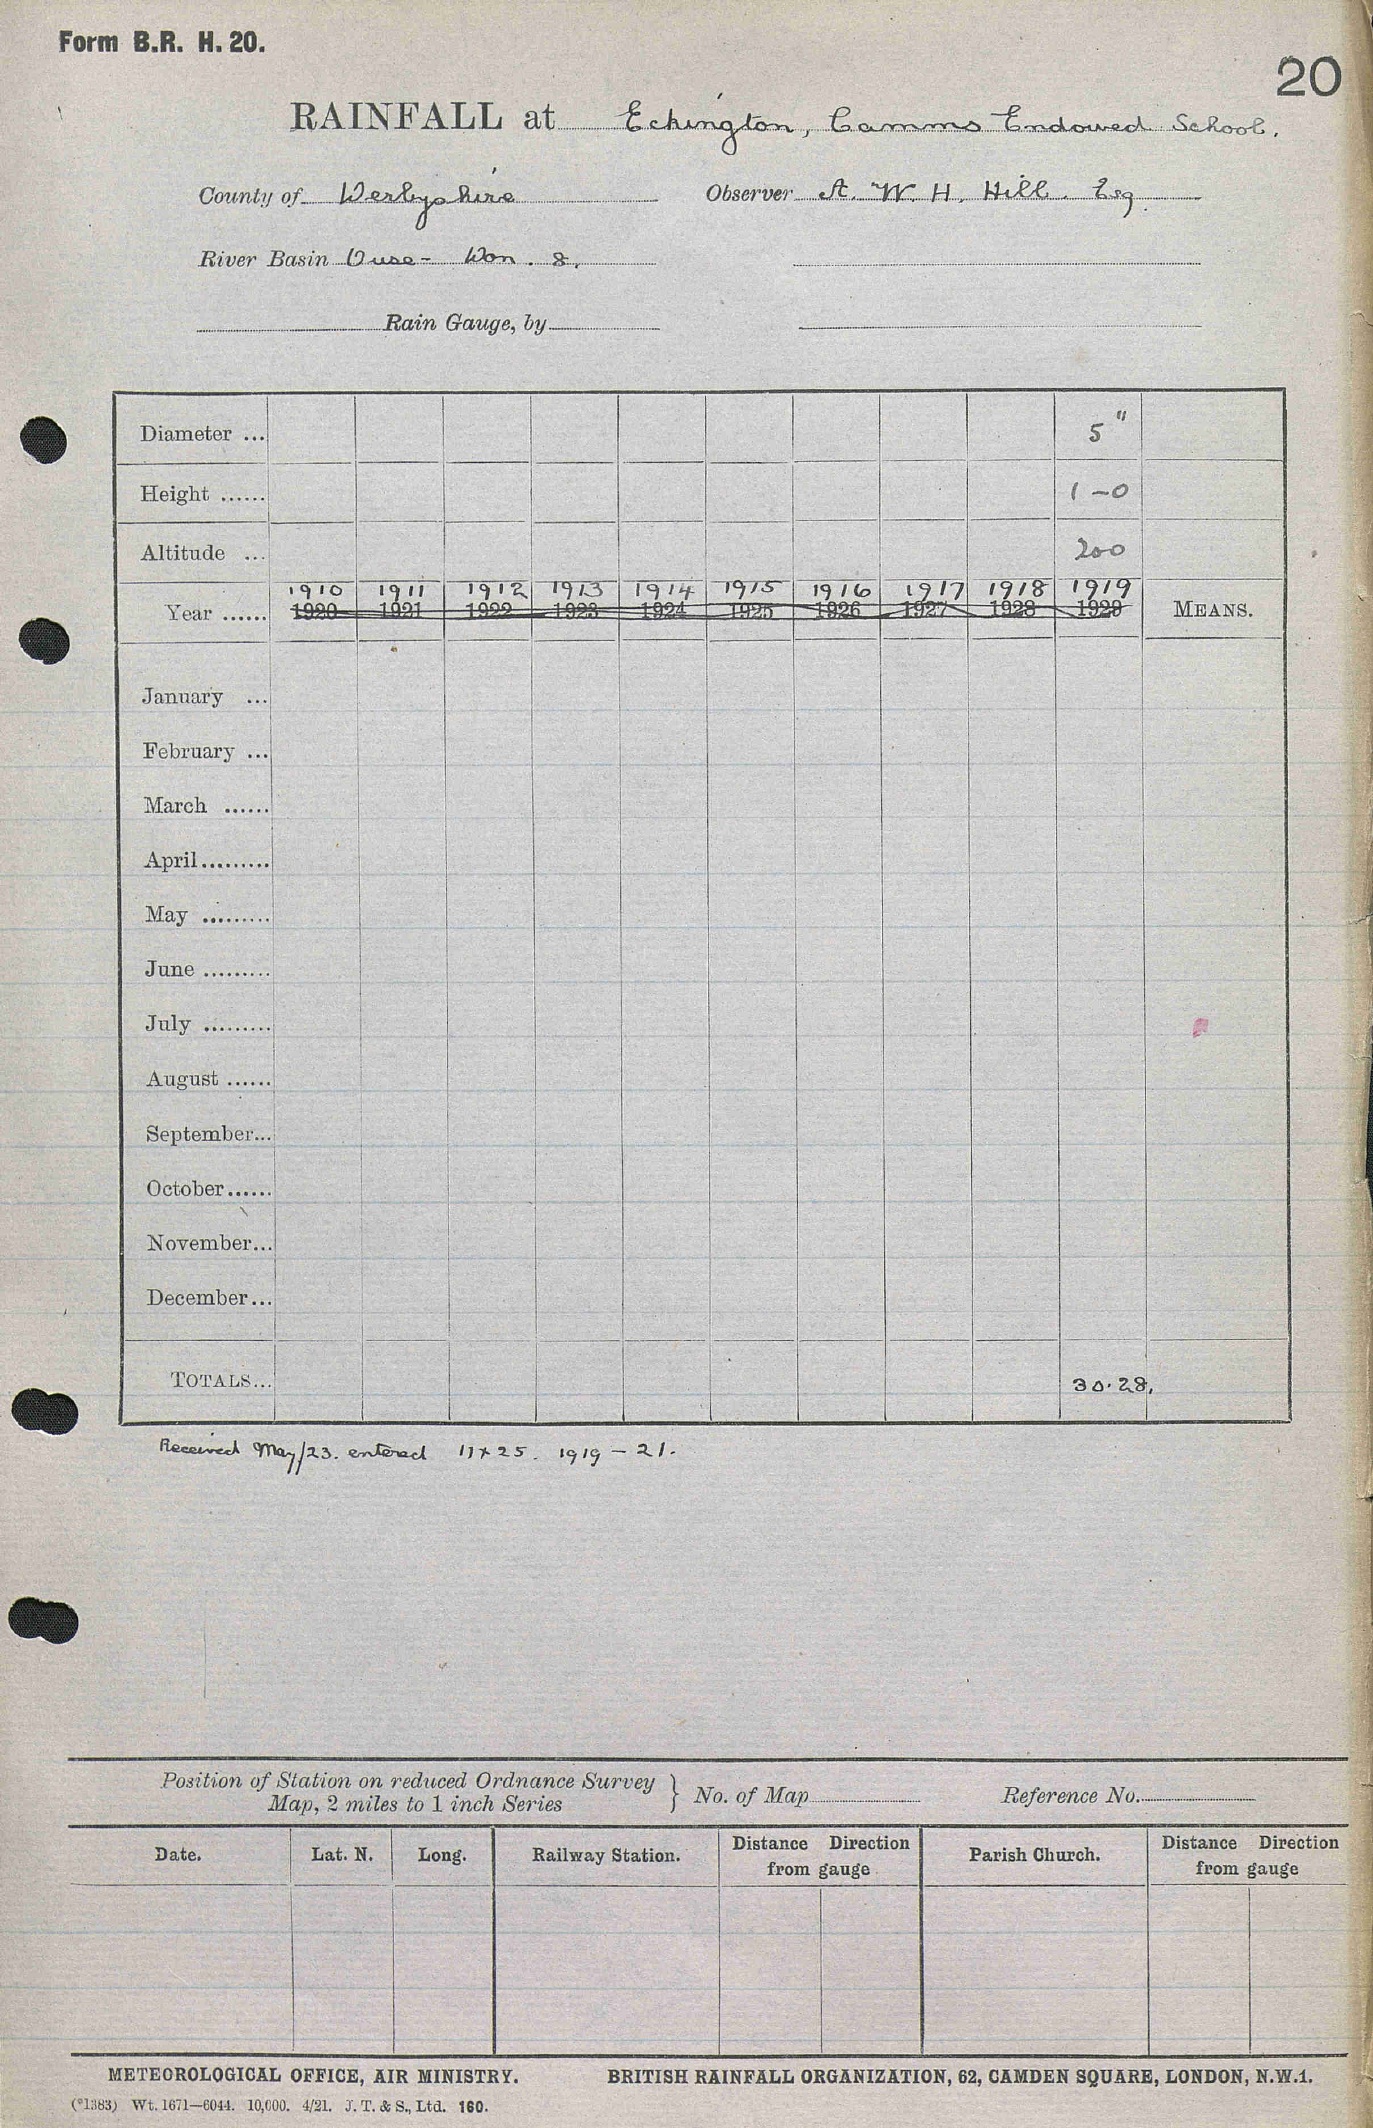 Form B.R. H. 20.
20
RAINFALL at Eckington, Camms Endowed School.
County of Derbyshire Observer A. W. H. Hill. Esq.
River Basin Ouse - Don. 8.
Rain Gauge, by
Diameter ... 5"
Height ...... 1-0
Altitude ... 200
1910 1911 1912 1913 1914 1915 1916 1917 1918 1919
Year ...... 1920 1921 1922 1923 1924 1925 1926 1927 1928 1929 MEANS.
January ...
February ...
March ......
April.........
May .........
June .........
July .........
August ......
September...
October......
November...
December...
TOTALS... 30.28.
Received May/23. entered 11 x 25. 1919 - 21.
Position of Station on reduced Ordnance Survey
Map, 2 miles to 1 inch Series } No. of Map Reference No.
Date. Lat. N. Long. Railway Station. Distance Direction from gauge Parish Church. Distance Direction from gauge
METEOROLOGICAL OFFICE, AIR MINISTRY. BRITISH RAINFALL ORGANIZATION, 62, CAMDEN SQUARE, LONDON, N.W.1.
(*1383) Wt. 1671—6044. 10,000. 4/21. J. T. & S., Ltd. 160.